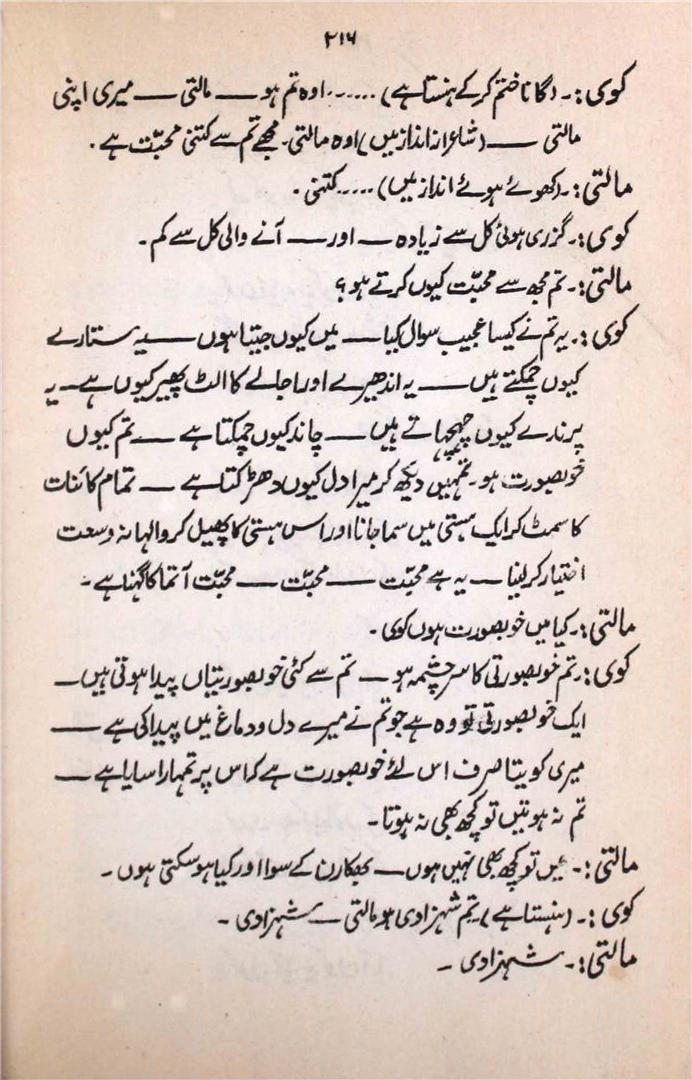 ۲۱۶
کوی:۔ (گانا ختم کرکے ہنستا ہے) ...... اوہ تم ہو — مالتی — میری اپنی
مالتی — (شاعرانہ انداز میں) اوہ مالتی۔ مجھے تم سے کتنی محبّت ہے۔
مالتی:۔ (کھوئے ہوئے انداز میں) ..... کتنی۔
کوی:۔ گزری ہوئی کل سے زیادہ — اور — آنے والی کل سے کم۔
مالتی:۔ تم مجھ سے محبّت کیوں کرتے ہو؟
کوی:۔ یہ تم نے کیسا عجیب سوال کیا — میں کیوں جیتا ہوں — یہ ستارے
کیوں چمکتے ہیں — یہ اندھیرے اور اجالے کا الٹ پھیر کیوں ہے — یہ
پرندے کیوں چہچہاتے ہیں — چاند کیوں چمکتا ہے — تم کیوں
خوبصورت ہو۔ تمہیں دیکھ کر میرا دل کیوں دھڑکتا ہے — تمام کائنات
کا سمٹ کر ایک ہستی میں سما جانا اور اس ہستی کا پھیل کر والہانہ وسعت
اختیار کر لینا — یہ ہے محبّت — محبّت — محبّت آتما کا گہنا ہے۔
مالتی:۔ کیا میں خوبصورت ہوں کوی۔
کوی:۔ تم خوبصورتی کا سرچشمہ ہو — تم سے کئی خوبصورتیاں پیدا ہوتی ہیں —
ایک خوبصورتی تو وہ ہے جو تم نے میرے دل و دماغ میں پیدا کی ہے —
میری کویتا صرف اس لئے خوبصورت ہے کہ اس پر تمہارا سایا ہے —
تم نہ ہوتیں تو کچھ بھی نہ ہوتا۔
مالتی:۔ میں تو کچھ بھی نہیں ہوں — بھکارن کے سوا اور کیا ہو سکتی ہوں۔
کوی:۔ (ہنستا ہے) تم شہزادی ہو مالتی — شہزادی۔
مالتی:۔ شہزادی۔